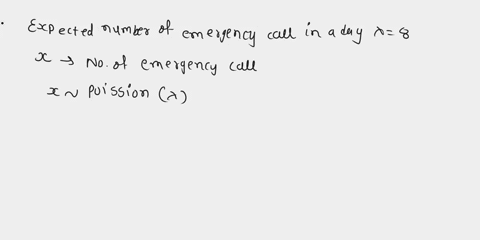 . Expected number of emergency call in a day λ = 8
x → No. of emergency call
x ~ Poission (λ)